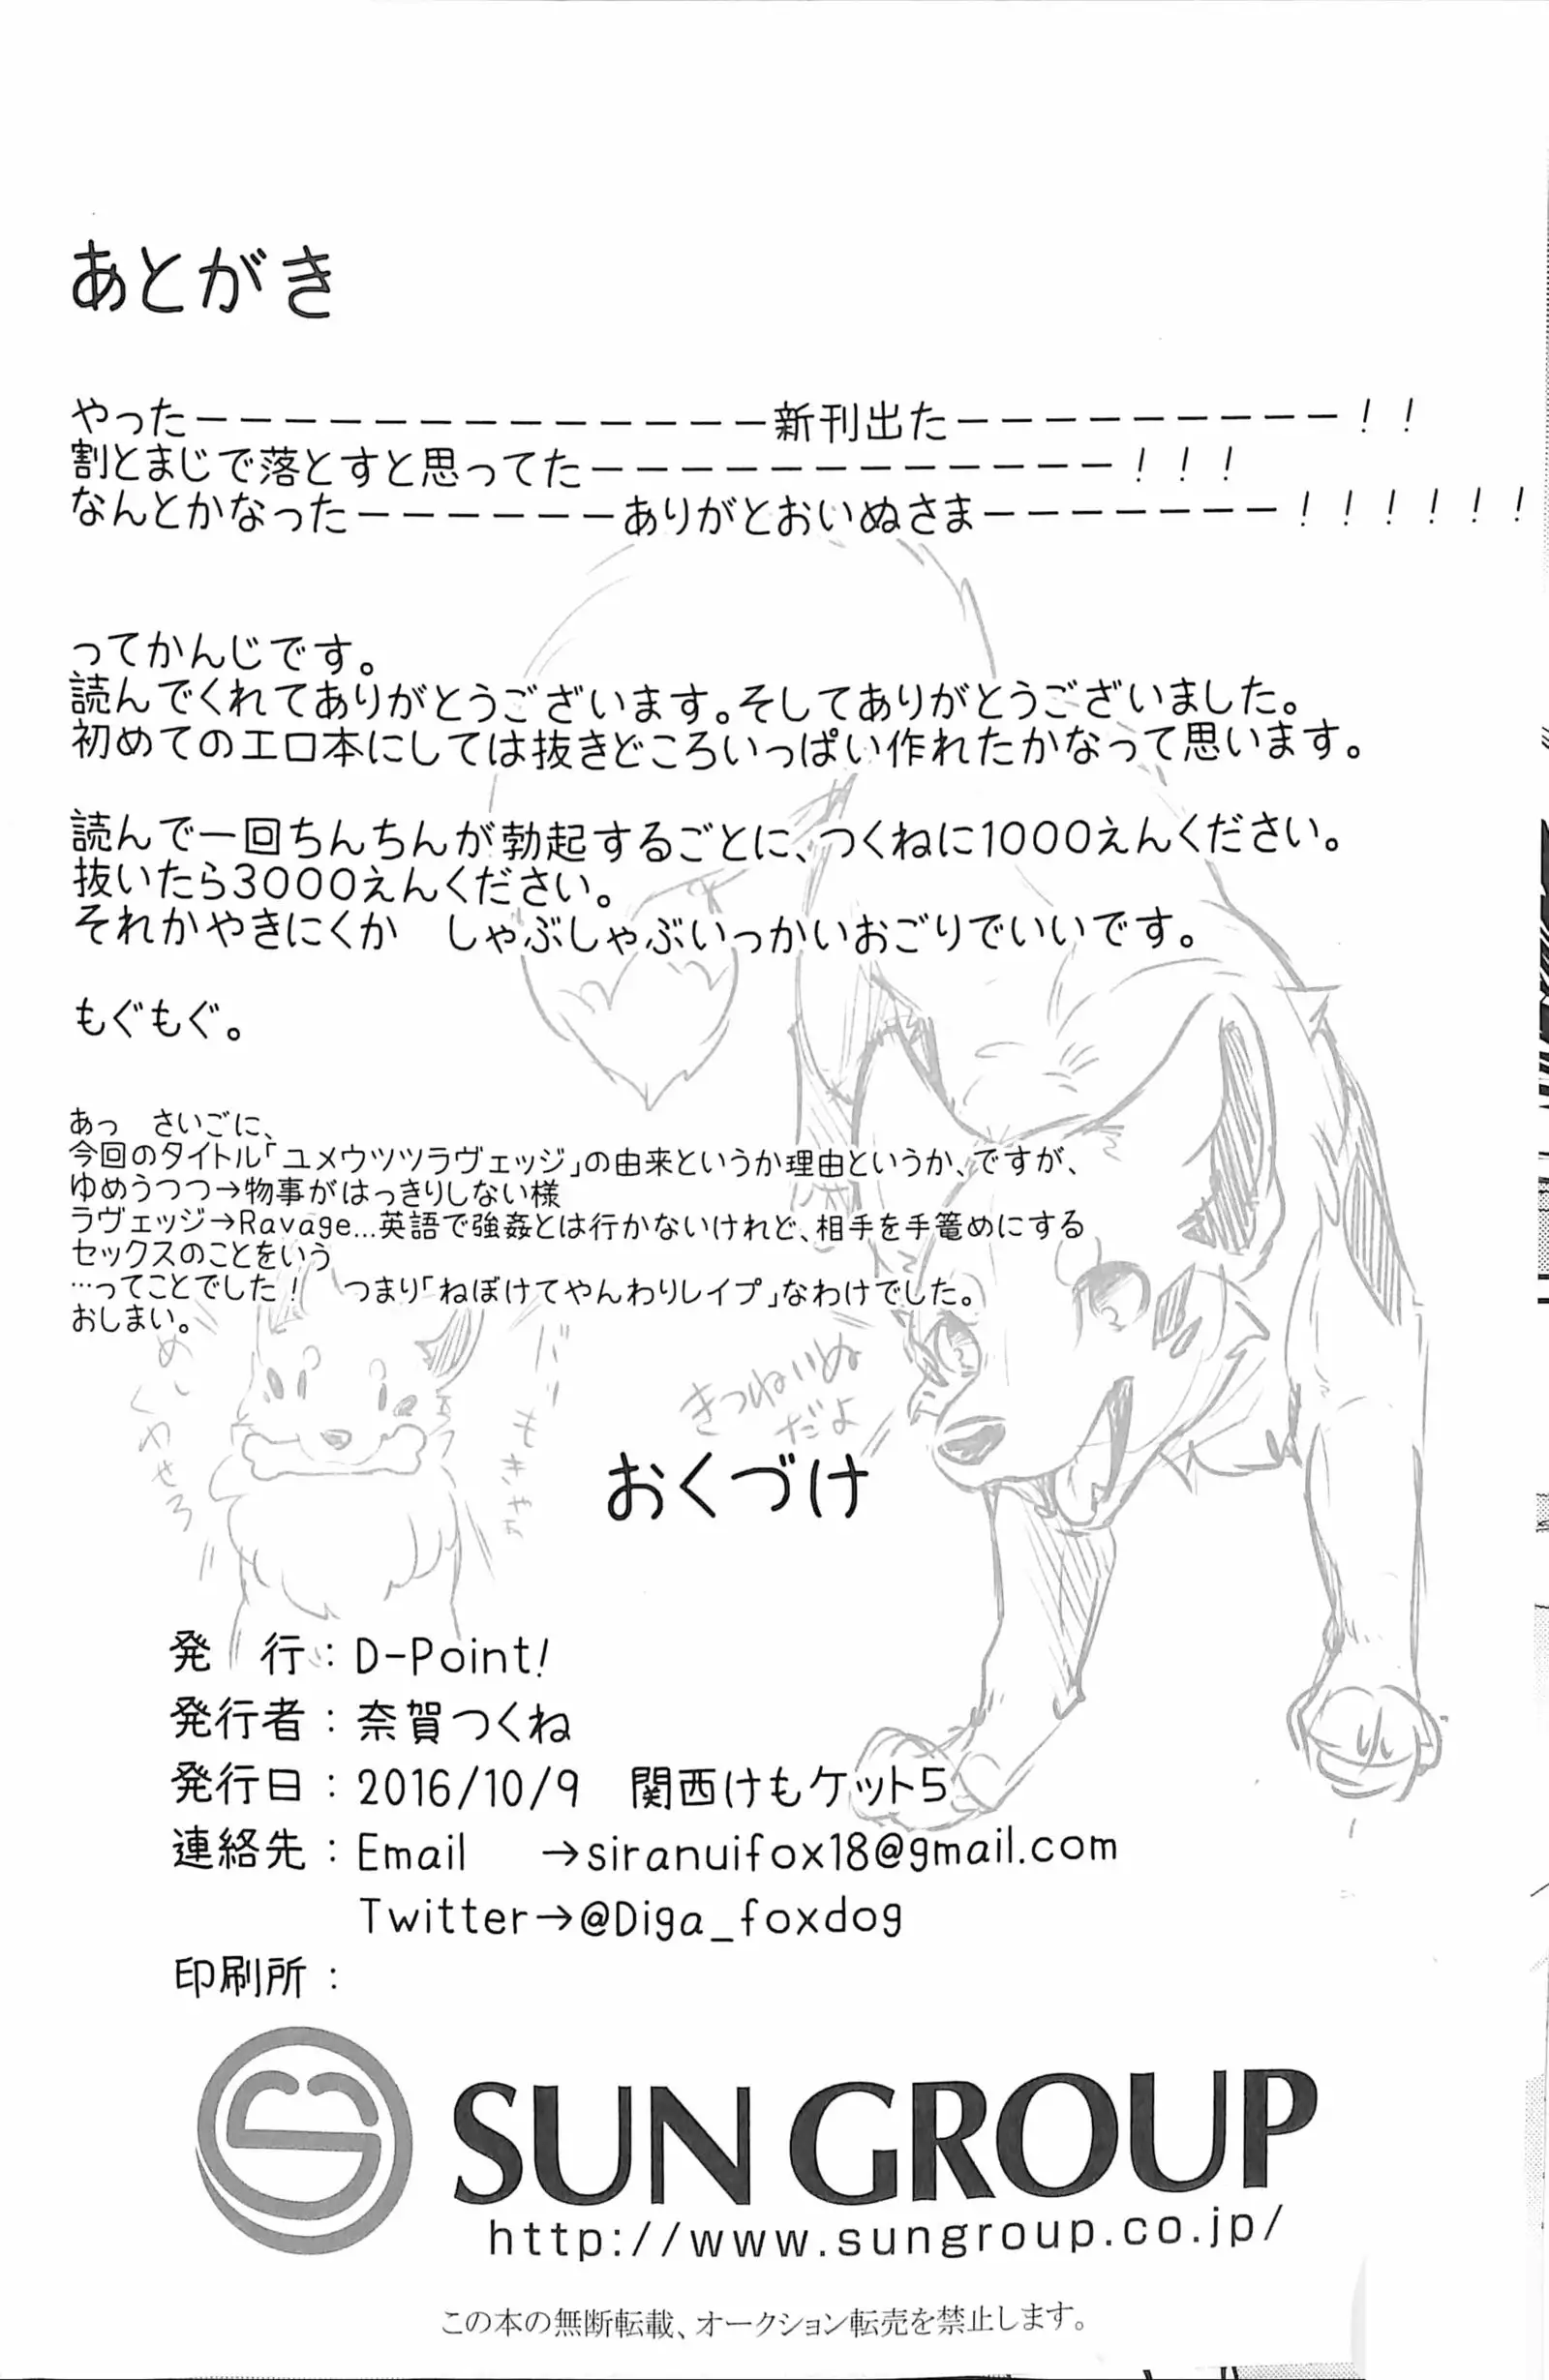 あとがき
やったーーーーーーーーーーーーー新刊出たーーーーーーーーー！！
割とまじで落とすと思ってたーーーーーーーーーーーー！！！
なんとかなったーーーーーーありがとおいぬさまーーーーーーー！！！！！！
ってかんじです。
読んでくれてありがとうございます。そしてありがとうございました。
初めてのエロ本にしては抜きどころいっぱい作れたかなって思います。
読んで一回ちんちんが勃起するごとに、つくねに1000えんください。
抜いたら3000えんください。
それかやきにくか　しゃぶしゃぶいっかいおごりでいいです。
もぐもぐ。
あっ　さいごに、
今回のタイトル「ユメウツツラヴェッジ」の由来というか理由というか、ですが、
ゆめうつつ→物事がはっきりしない様
ラヴェッジ→Ravage…英語で強姦とは行かないけれど、相手を手篭めにする
セックスのことをいう
…ってことでした！　つまり「ねぼけてやんわりレイプ」なわけでした。
おしまい。
めし
くわせろ
きつねいぬ
だよ
おくづけ
発　行：D-Point!
発行者：奈賀つくね
発行日：2016/10/9　関西けもケット5
連絡先：Email　→siranuifox18@gmail.com
Twitter→@Diga_foxdog
印刷所：
SUN GROUP
http://www.sungroup.co.jp/
この本の無断転載、オークション転売を禁止します。